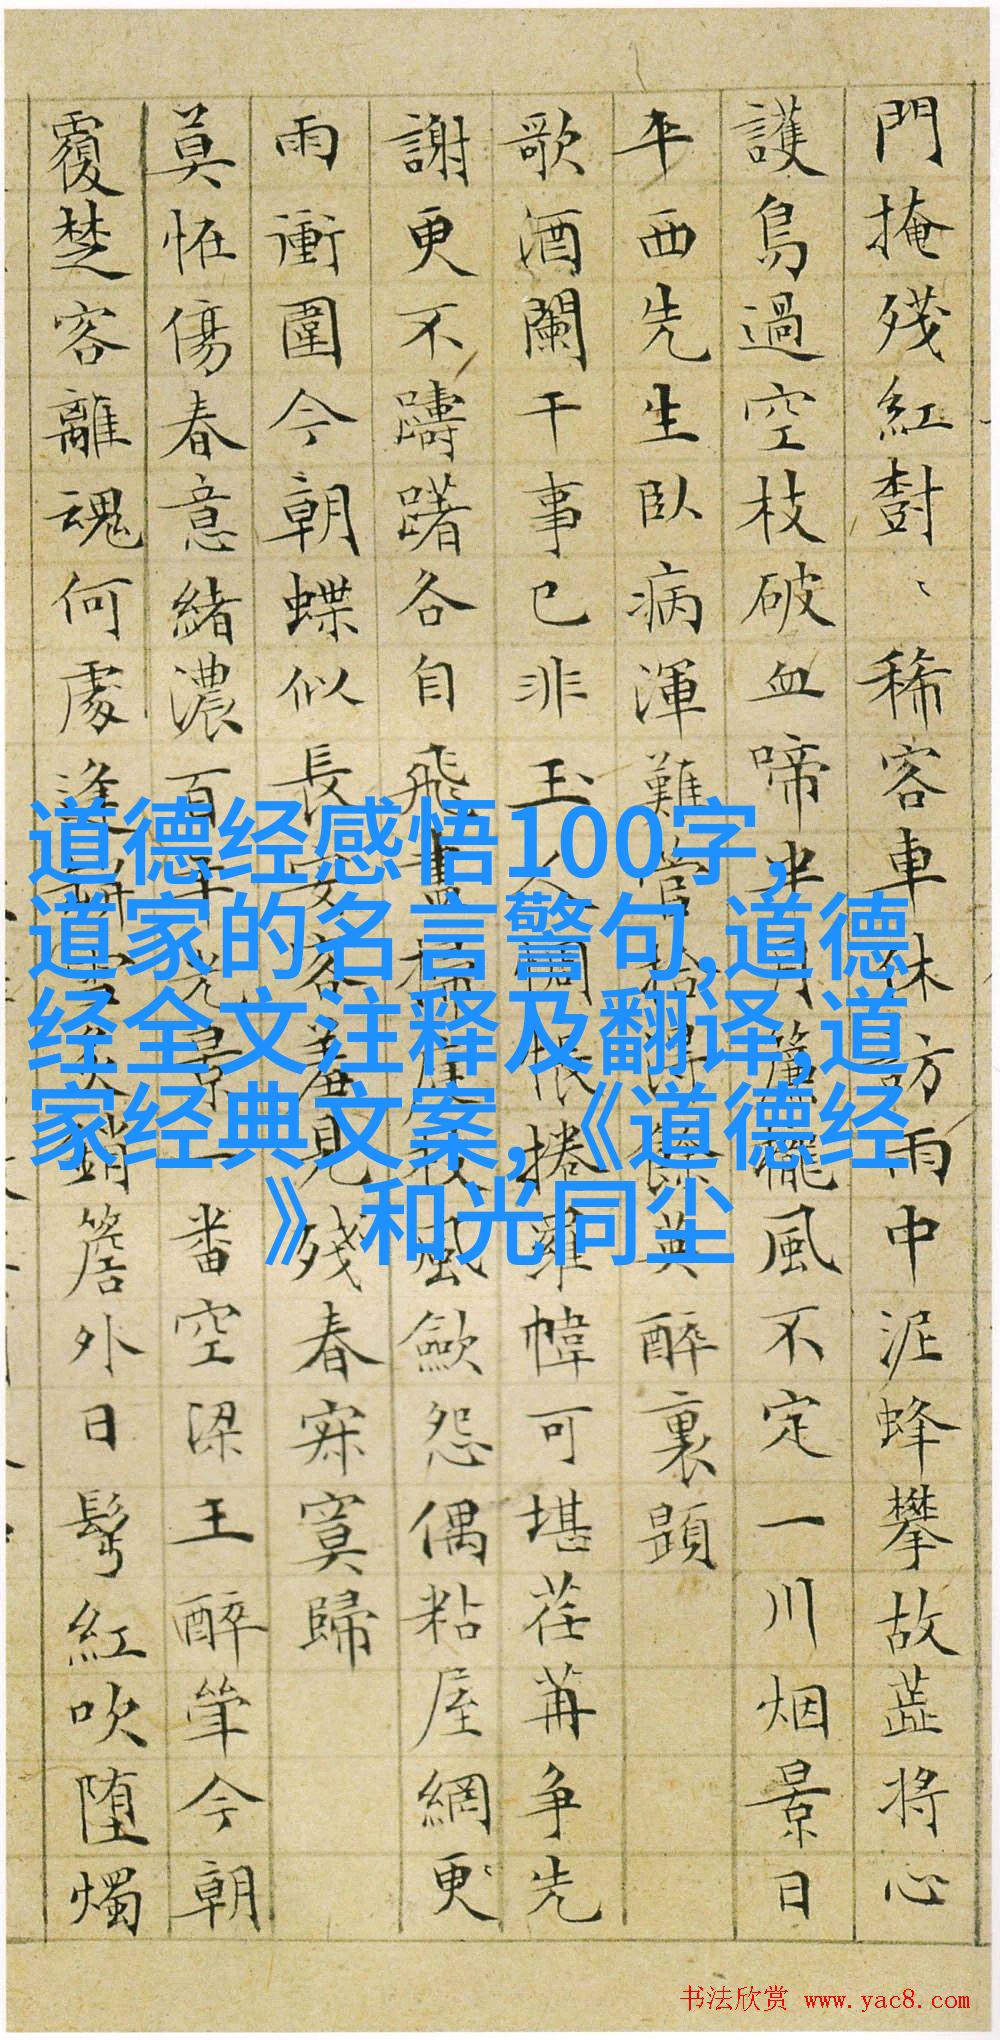 門掩殘紅樹〻稀客車休訪雨中泥蜂攀故蕋將心
護鳥過空枝破血啼半月簾櫳風不定一川烟景日
平西先生臥病渾難管拾得餘英醉裏題
歌酒闌干事已非玉人惆悵捲羅幃可堪荏苒爭先
謝更不躊躇各自飛風歛怨偶粘屋網更
雨衝圍今朝蝶似長安客羞見殘春寂寞歸
莫怪傷春意緒濃百年光景一番空梁王醉筆今朝
覆楚客離魂何處逢銷簷外日髩紅吹墮燭
道德经感悟100字,
道家的名言警句,道德
经全文注释及翻译,道
家经典文案,《道德经
》和光同尘
书法欣赏 www.yac8.com